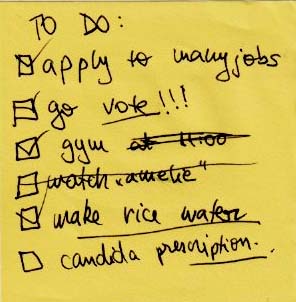 TO DO:
apply to many jobs
go vote!!!
gym at 11:00
watch "amelie"
make rice water
candida prescription.